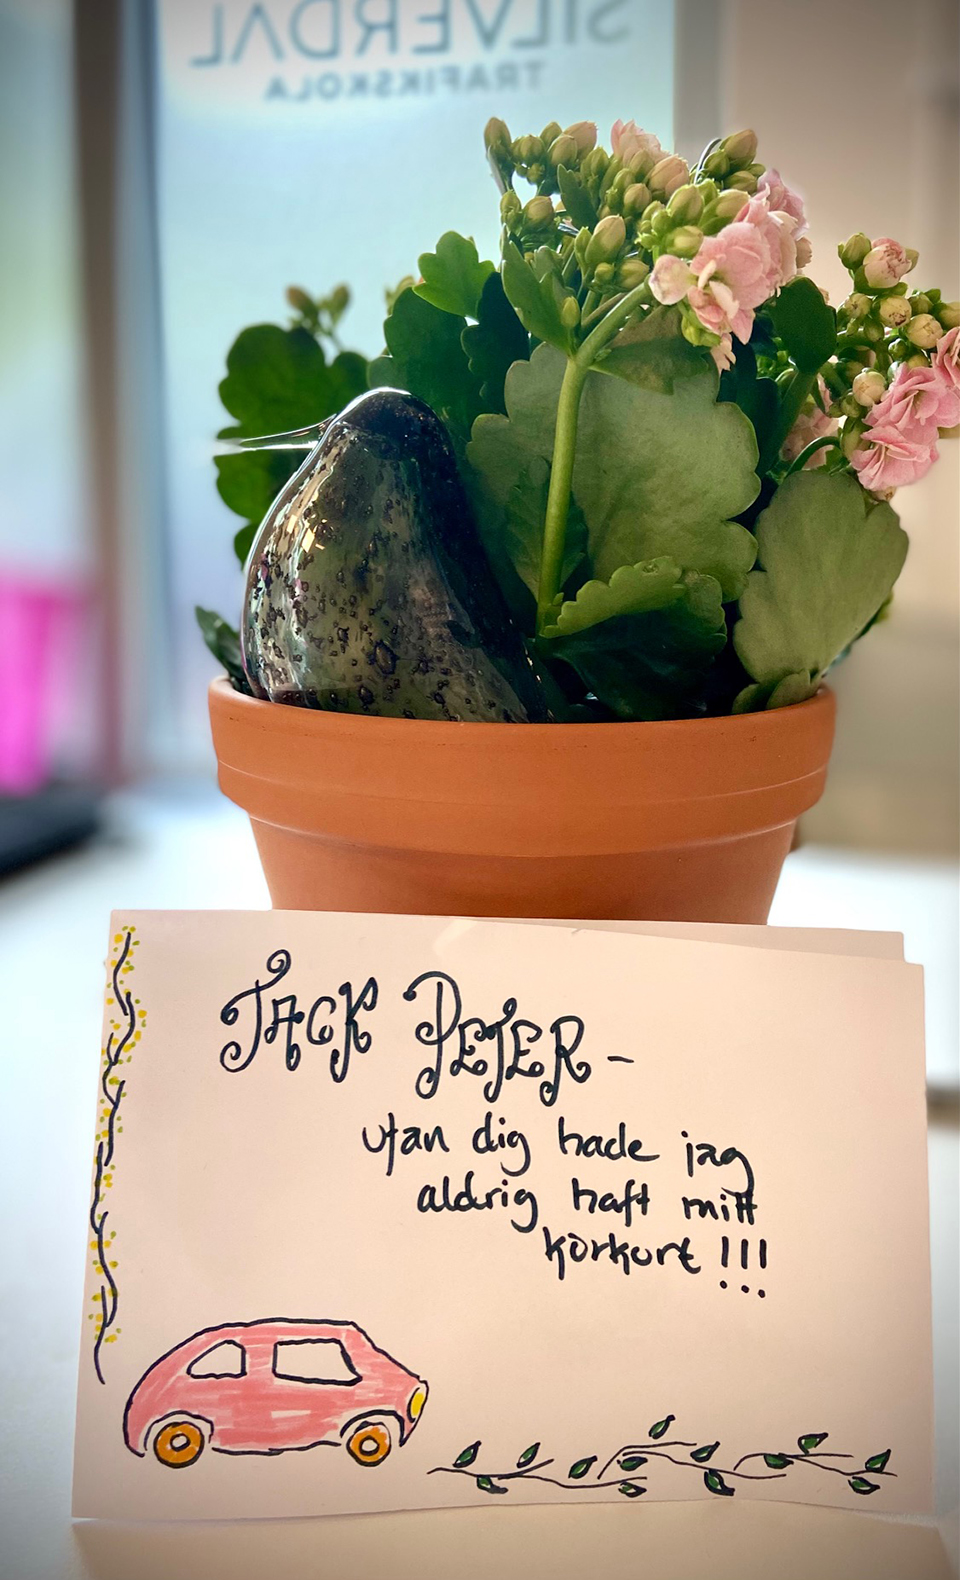 SILVERDAL
TRAFIKSKOLA
TACK PETER-
utan dig hade jag
aldrig haft mitt
körkort!!!